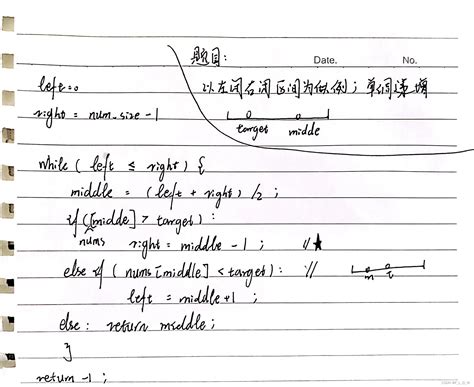 题目:
Date.
No.
以左闭右闭区间为例; 单调递增
target middle
left = 0
right = num_size - 1
while ( left ≤ right) {
middle = (left + right) / 2 ;
if ([midde] > target) :
nums
right = middle - 1 ; //★
else if ( nums [middle] < target) : //
m t
left = middle + 1 ;
else : return middle ;
}
return -1 ;